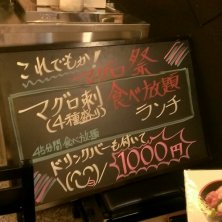 これでもか!
マグロ祭
マグロ刺 食べ放題
(4種盛り) ランチ
45分間 食べ放題
ドリンクバーも付いて
1000円